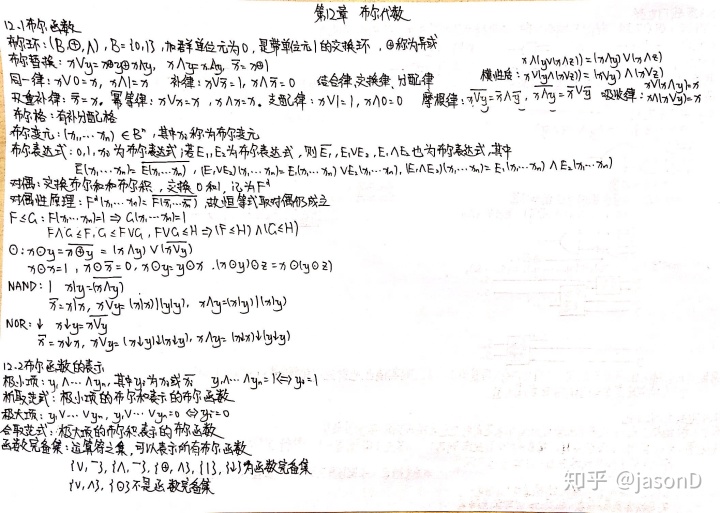 第12章 布尔代数
12.1 布尔函数
布尔环：(B,⊕,∧), B={0,1}, 加群单位元为0, 是带单位元1的交换环, ⊕称为异或
布尔替换：x∨y=x⊕y⊕x∧y, x∧y=x∧y, x̅=x⊕1
x∧(y∨(x∧z))=(x∧y)∨(x∧z)
同一律：x∨0=x, x∧1=x 补律：x∨x̅=1, x∧x̅=0 结合律、交换律、分配律 模性律：x∨(y∧(x∨z))=(x∨y)∧(x∨z)
双重补律：x̅̅=x. 幂等律：x∨x=x, x∧x=x. 支配律：x∨1=1, x∧0=0 摩根律：\overline{x∨y}=x̅∧y̅, \overline{x∧y}=x̅∨y̅ 吸收律：x∨(x∧y)=x x∧(x∨y)=x
布尔格：有补分配格
布尔变元：(x₁,…xₙ)∈Bⁿ, 其中xᵢ称为布尔变元
布尔表达式：0,1,xᵢ为布尔表达式；若E₁,E₂为布尔表达式, 则E̅₁,E₁∨E₂,E₁∧E₂也为布尔表达式,其中
E̅(x₁,…xₙ)=\overline{E(x₁,…xₙ)}, (E₁∨E₂)(x₁,…xₙ)=E₁(x₁,…xₙ)∨E₂(x₁,…xₙ), (E₁∧E₂)(x₁,…xₙ)=E₁(x₁,…xₙ)∧E₂(x₁,…xₙ)
对偶：交换布尔和和布尔积, 交换0和1, 记为Fᵈ
对偶性原理：Fᵈ(x₁,…xₙ)=\overline{F(x̅₁,…x̅ₙ)}, 故恒等式取对偶仍成立
F≤G：F(x₁,…xₙ)=1⇒G(x₁,…xₙ)=1
F∧G≤F, G≤F∨G, F∨G≤H⇒(F≤H)∧(G≤H)
⊙：x⊙y=\overline{x⊕y}=(x∧y)∨(\overline{x∨y})
x⊙x=1, x⊙x̅=0, x⊙y=y⊙x, (x⊙y)⊙z=x⊙(y⊙z)
NAND：| x|y=(\overline{x∧y})
x̅=x|x, x∨y=(x|x)|(y|y), x∧y=(x|y)|(x|y)
NOR：↓ x↓y=\overline{x∨y}
x̅=x↓x, x∨y=(x↓y)↓(x↓y), x∧y=(x↓x)↓(y↓y)
12.2 布尔函数的表示
极小项：y₁∧…∧yₙ, 其中yᵢ为xᵢ或x̅ᵢ y₁∧…∧yₙ=1⇔yᵢ=1
析取范式：极小项的布尔和表示的布尔函数
极大项：y₁∨…∨yₙ, y₁∨…∨yₙ=0⇔yᵢ=0
合取范式：极大项的布尔积表示的布尔函数
函数完备集：运算符之集, 可以表示所有布尔函数
{∨,¯}, {∧,¯}, {⊕,∧}, {|}, {↓}为函数完备集
{∨,∧}, {⊙}不是函数完备集
知乎 @jasonD